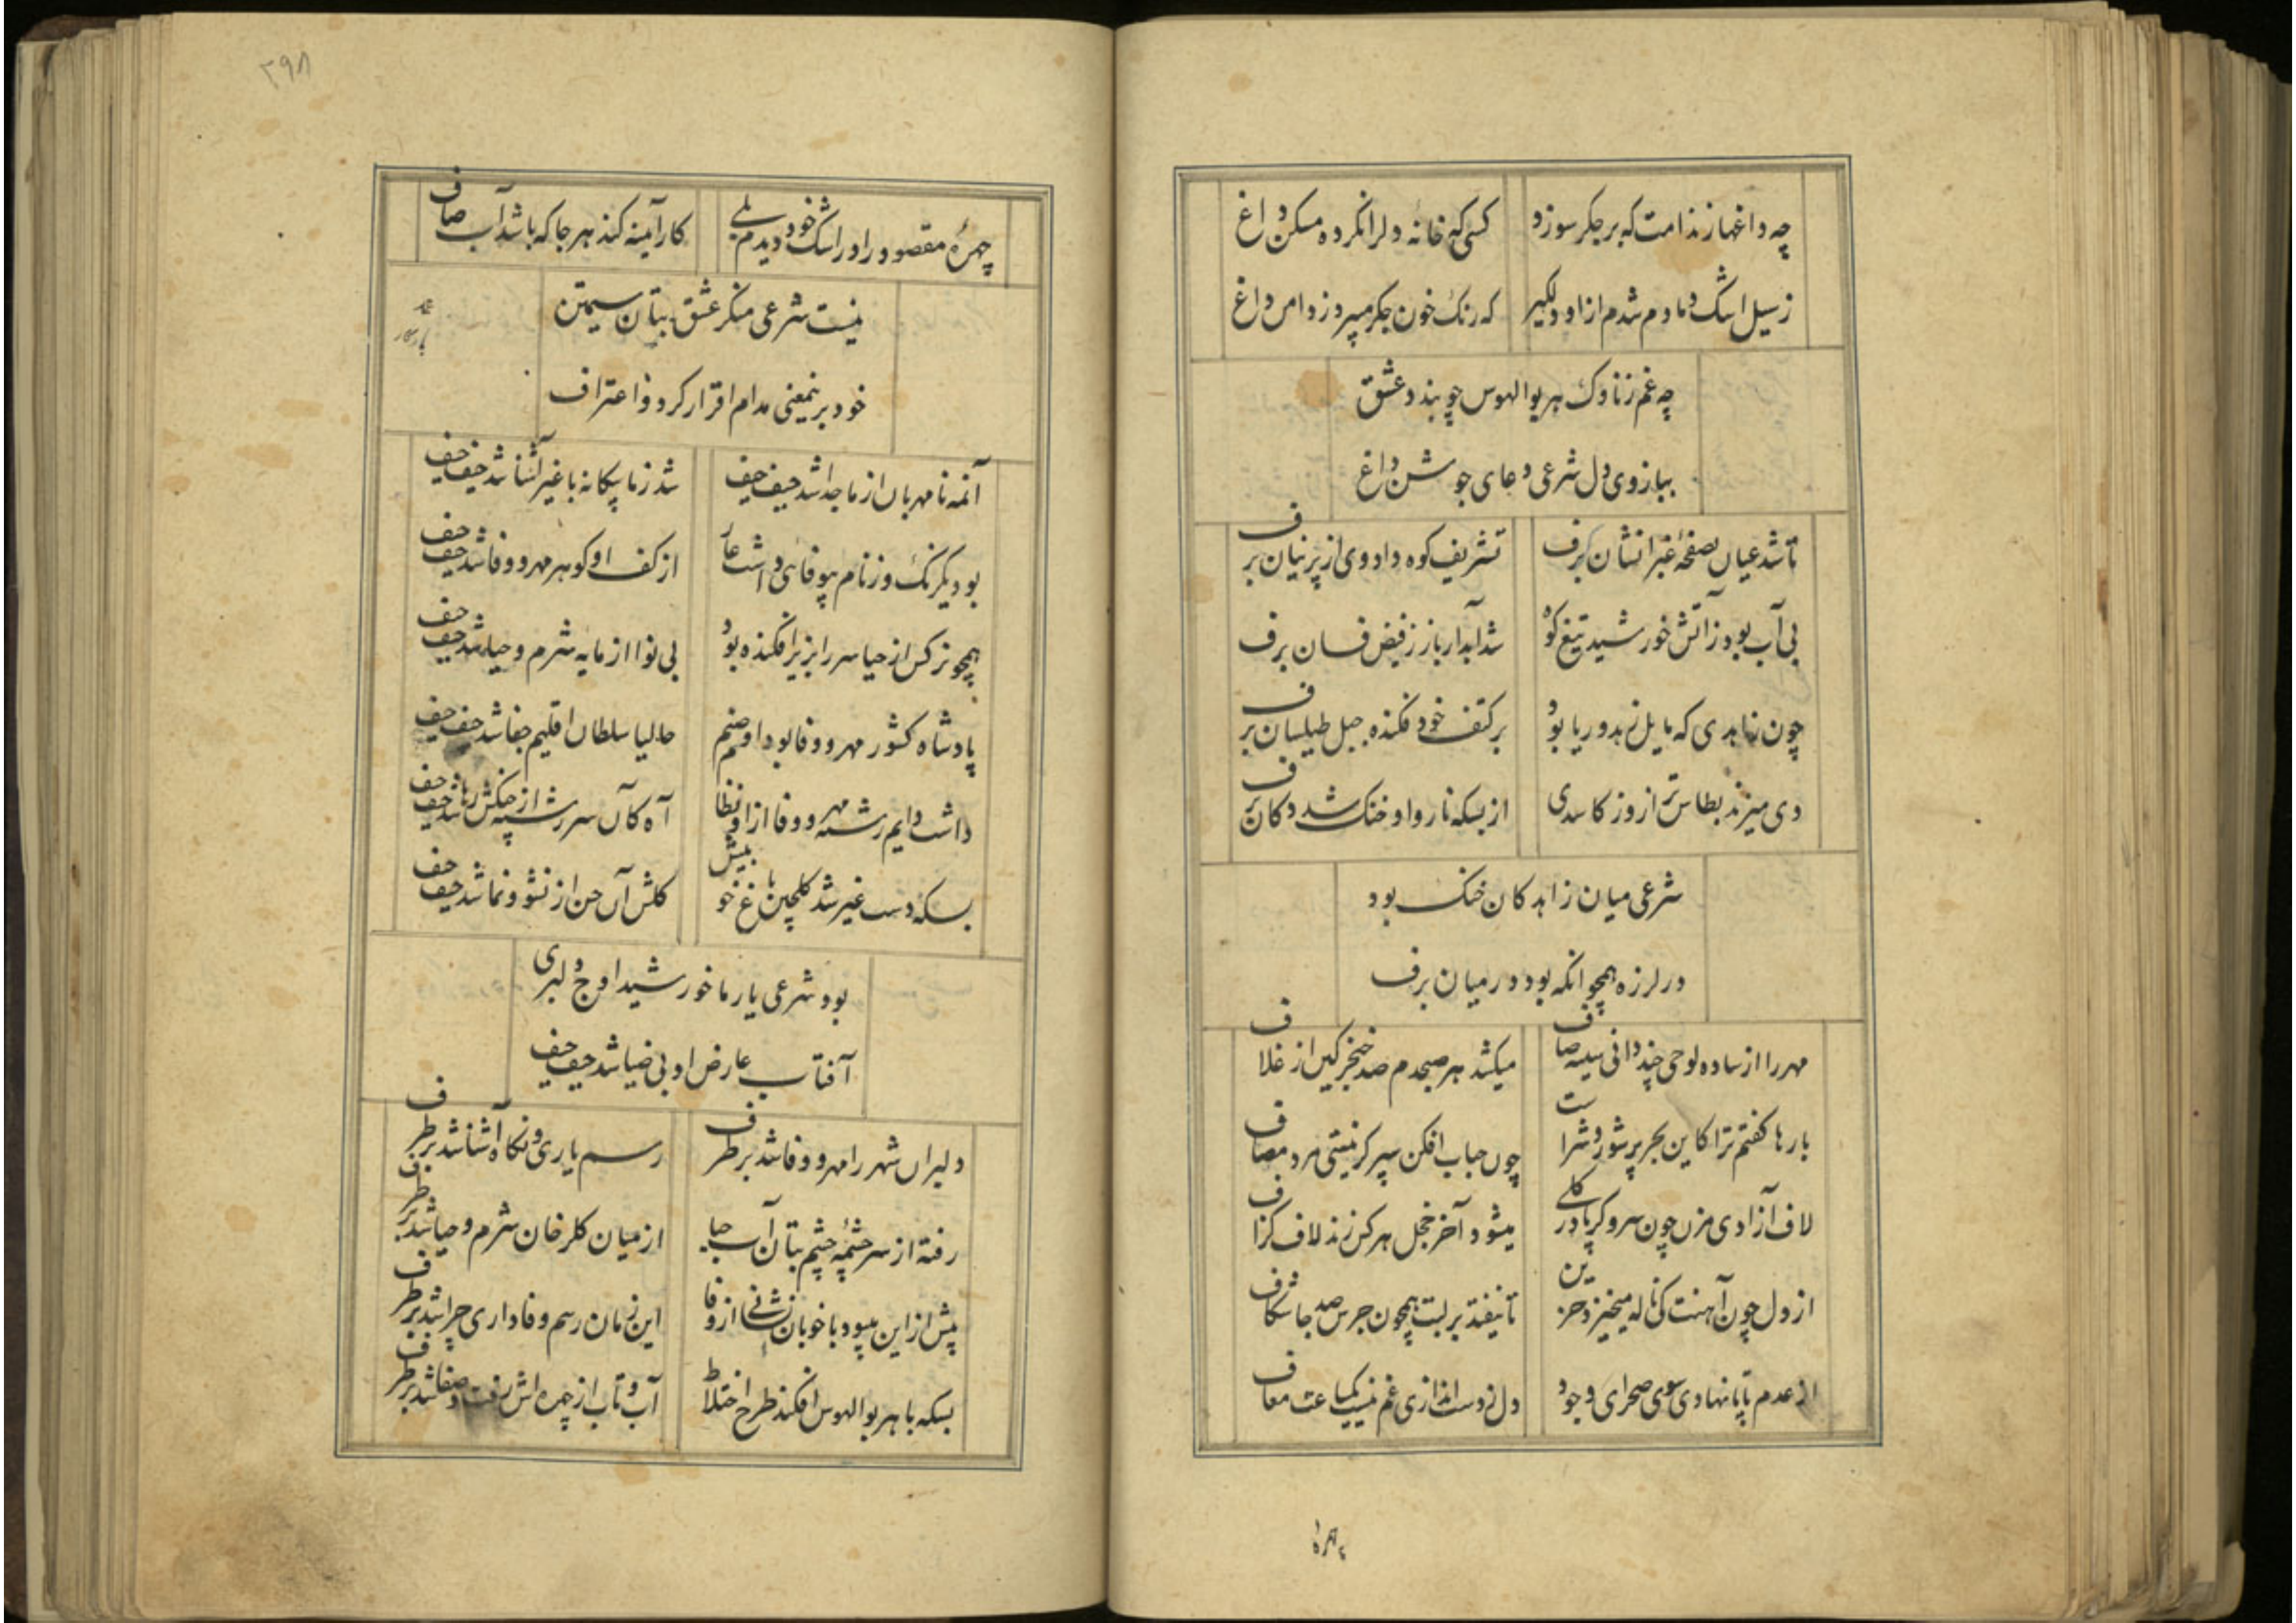 چه داغها ز ندامت که بر جکر سوزد
کسی که خانه دل را نکرده مسکن داغ
ز سیل اشک دمادم شدم از او دلکیر
که رنک خون جکر میبرد ز دامن داغ
چه غم ز ناوک هر بوالهوس چو بندد عشق
ببازوی دل شرعی دعای جوشن داغ
تا شد عیان بصفحهٔ غبرا نشان برف
تشریف کوه داد وی از پرنیان برف
بی آب بود ز آتش خورشید تیغ کوه
شد آبدار باز ز فیض فسان برف
چون زاهدی که مایل زهد و ریا بود
بر کتف خود فکنده جبل طیلسان برف
دی میزند بطاس تر از روز کاسدی
از بسکه ناروا و خنک شد دکان برف
شرعی میان زاهدکان خنک بود
در لرزه همچو انکه بود در میان برف
مهر را از ساده لوحی چند دانی سینه صاف
میکشد هر صبحدم صد خنجر کین از غلاف
بارها کفتم ترا کاین بحر پر شور و شراست
چون حباب افکن سپر کر نیستی مرد مصاف
لاف آزادی مزن چون سرو کر پا در کلی
میشود آخر خجل هر کس زند لاف کزاف
از دل چون آهنت کی ناله میخیزد حزین
تا نیفتد بر لبت همچون جرس صد جا شکاف
از عدم تا پا نهادی سوی صحرای وجود
دل ز دست اندازی غم نیست یکساعت معاف
چهره
۳۹۸
چهرهٔ مقصود را در اشک خود دیدم بلی
کار آینه کند هر جا که باشد آب صاف
نیست شرعی منکر عشق بتان سیمتن
خود برینمعنی مدام اقرار کرد و اعتراف
آنمه نامهربان از ما جدا شد حیف حیف
شد ز ما بیکانه با غیر آشنا شد حیف حیف
بود یکرنک و ز نام بیوفائی داشت عار
از کف او کوهر مهر و وفا شد حیف حیف
همچو نرکس از حیا سر را بزیر افکنده بود
بی نوا از مایه شرم و حیا شد حیف حیف
پادشاه کشور مهر و وفا بود او صنم
حالیا سلطان اقلیم جفا شد حیف حیف
داشت دایم رشته مهر و وفا از او نظام
آه کآن سر رشته از چنکش رها شد حیف حیف
بسکه دست غیر شد کلچین باغ خوبیش
کلشن آن حسن از نشو و نما شد حیف حیف
بود شرعی یار ما خورشید اوج دلبری
آفتاب عارض او بی ضیا شد حیف حیف
دلبران شهر را مهر و وفا شد بر طرف
رسم یاری و نکاه آشنا شد بر طرف
رفته از سر چشمهٔ چشم بتان آب حیا
از میان کلرخان شرم و حیا شد بر طرف
پیش از این میبود با خوبان نشانی از وفا
این زمان رسم وفاداری چرا شد بر طرف
بسکه با هر بوالهوس افکند طرح اختلاط
آب و تاب از چهره اش رفت و صفا شد بر طرف